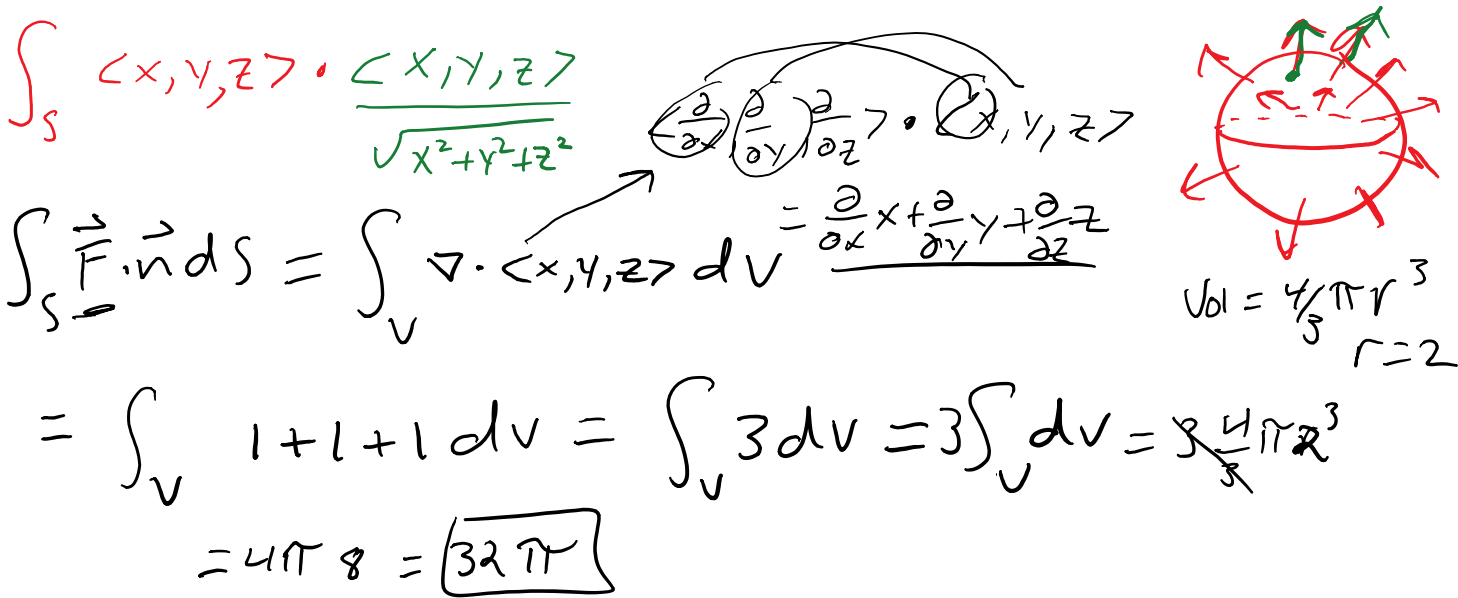 ∫_S <x, y, z> · <x, y, z> / √(x²+y²+z²)
<∂/∂x, ∂/∂y, ∂/∂z> · <x, y, z>
= ∂/∂x x + ∂/∂y y + ∂/∂z z
∫_S F⃗ · n⃗ dS = ∫_V ∇ · <x, y, z> dV
Vol = 4/3 π r³
r = 2
= ∫_V 1 + 1 + 1 dV = ∫_V 3 dV = 3 ∫_V dV = 3 4/3 π 2³
= 4π 8 = 32π